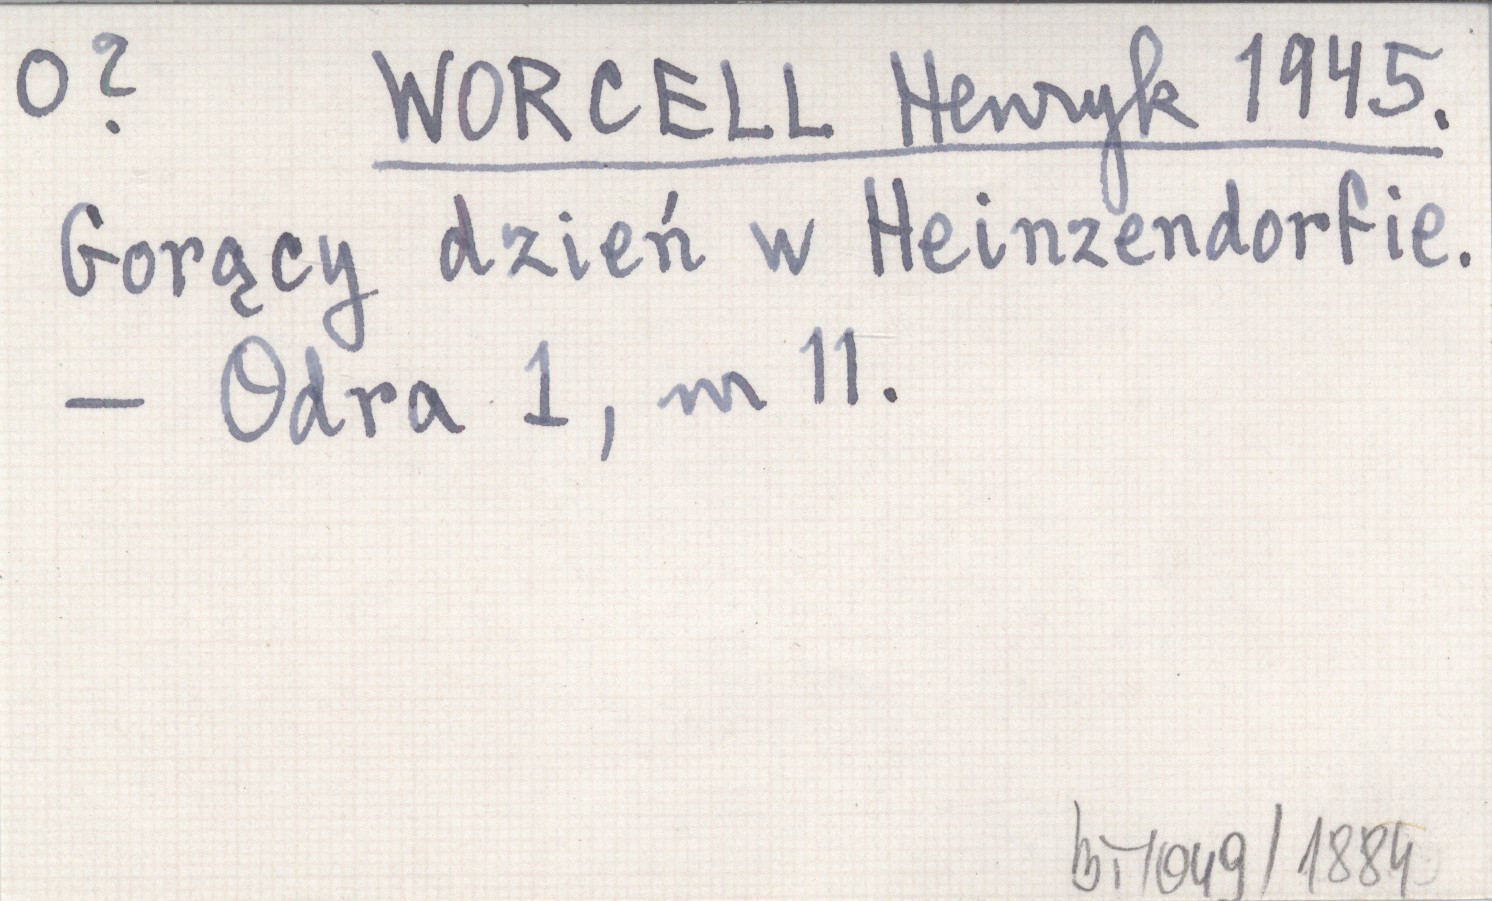 O? WORCELL Henryk 1945.
Gorący dzień w Heinzendorfie.
— Odra 1, nr 11.
/ 1884